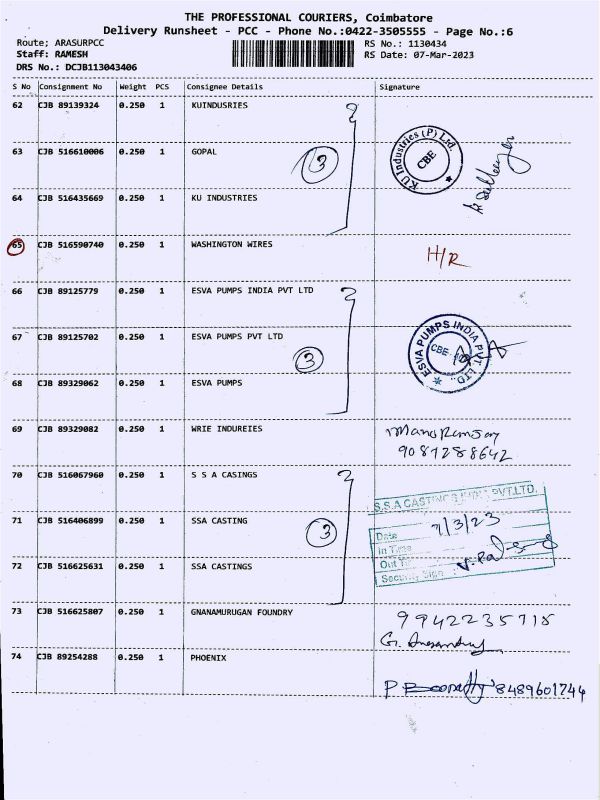 THE PROFESSIONAL COURIERS, Coimbatore
Delivery Runsheet - PCC - Phone No.:0422-3505555 - Page No.:6
Route; ARASURPCC RS No.: 1130434
Staff: RAMESH RS Date: 07-Mar-2023
DRS No.: DCJB113043406
S No Consignment No Weight PCS Consignee Details Signature
62 CJB 89139324 0.250 1 KUINDUSRIES
63 CJB 516610006 0.250 1 GOPAL 3 KU Industries (P) Ltd. CBE
64 CJB 516435669 0.250 1 KU INDUSTRIES
65 CJB 516590740 0.250 1 WASHINGTON WIRES H/R
66 CJB 89125779 0.250 1 ESVA PUMPS INDIA PVT LTD
67 CJB 89125702 0.250 1 ESVA PUMPS PVT LTD 3 ESVA PUMPS INDIA PVT. LTD., CBE
68 CJB 89329062 0.250 1 ESVA PUMPS
69 CJB 89329082 0.250 1 WRIE INDUREIES
9087288642
70 CJB 516067960 0.250 1 S S A CASINGS
S.S.A CASTINGS PVT.LTD.
71 CJB 516406899 0.250 1 SSA CASTING 3 Date 7/3/23
In Time
72 CJB 516625631 0.250 1 SSA CASTINGS Out
Security Sign
73 CJB 516625807 0.250 1 GNANAMURUGAN FOUNDRY 9942235718
74 CJB 89254288 0.250 1 PHOENIX
8489601744